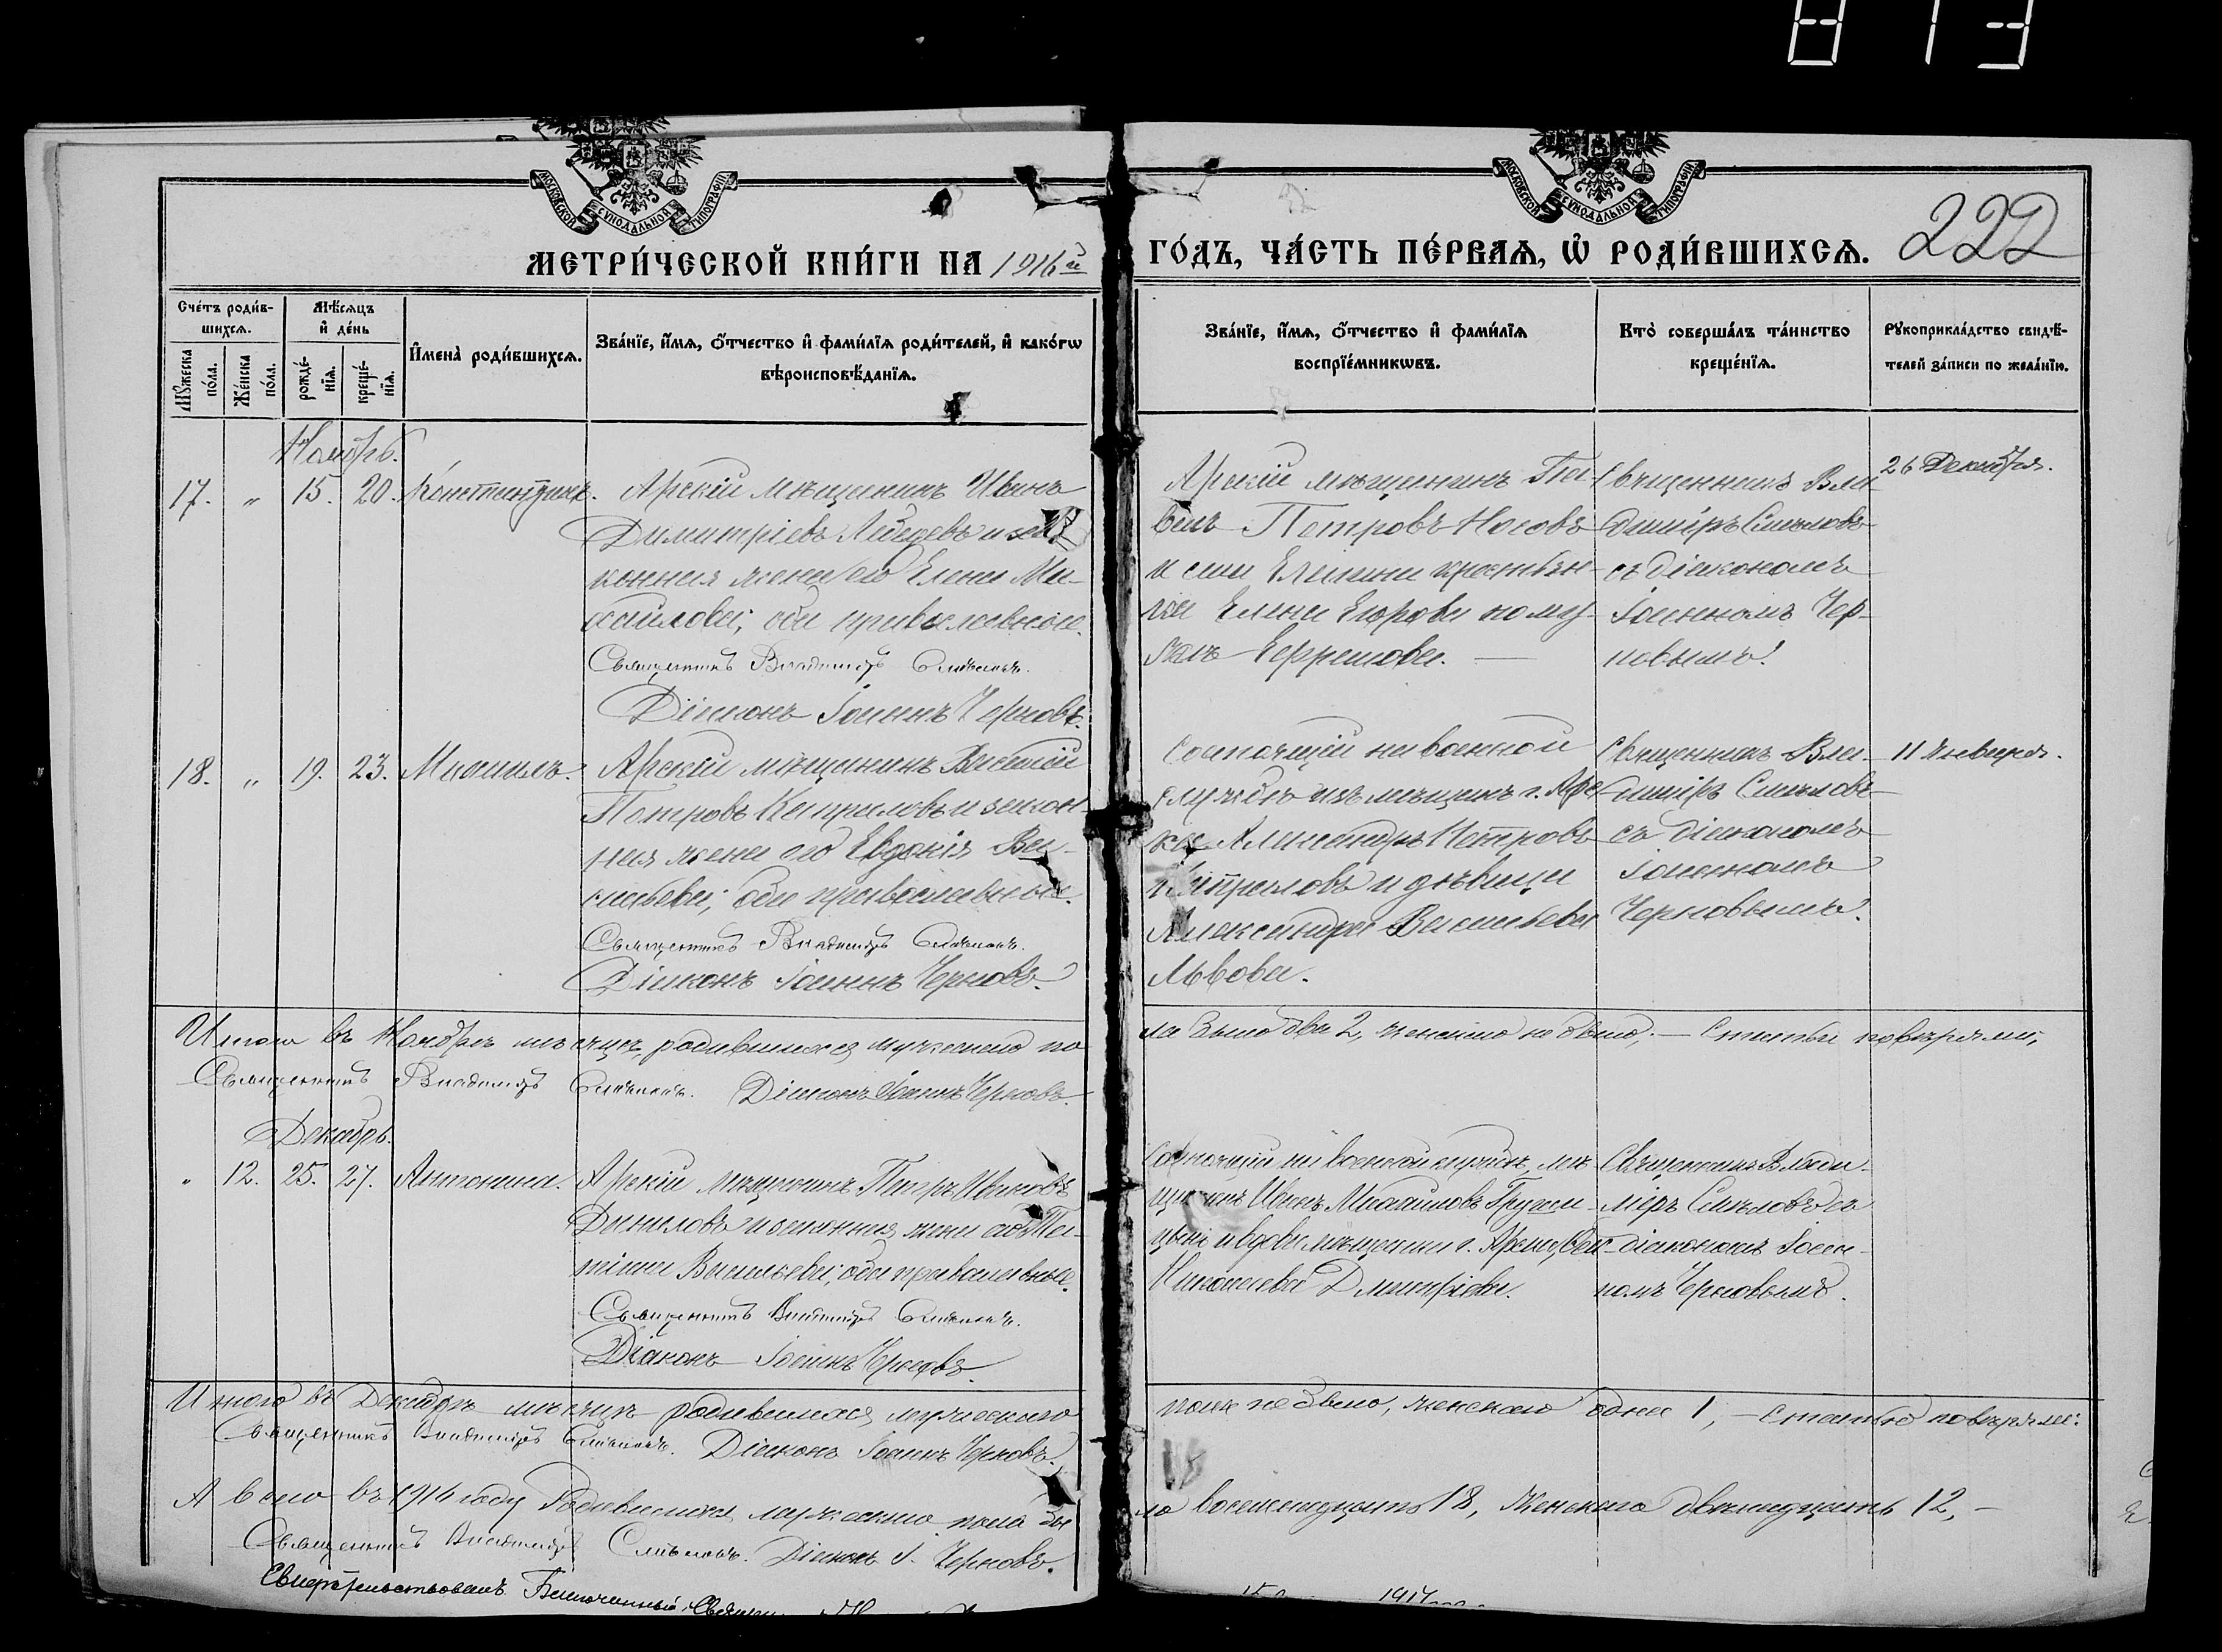 813
МОСКОВСКОЙ СѴНОДАЛЬНОЙ ТИПОГРАФІИ
МОСКОВСКОЙ СѴНОДАЛЬНОЙ ТИПОГРАФІИ
222
МЕТРИ́ЧЕСКОЙ КНИ́ГИ НА 1916й
ГО́ДЪ, ЧА́СТЬ ПЕ́РВАѦ, Ѡ҆ РОДИ́ВШИХСѦ.
Сче́тъ роди́в-
шихсѧ.
Мꙋ́жеска
по́ла.
Же́нска
по́ла.
Мѣ́сѧцъ
и҆ де́нь
рожде́-
нїѧ.
креще́-
нїѧ.
И҆мена̀ роди́вшихсѧ.
Зва́нїе, и҆́мѧ, ѻ҆́тчество и҆ фами́лїѧ роди́телей, и҆ како́гѡ
вѣроисповѣ́данїѧ.
Зва́нїе, и҆́мѧ, ѻ҆́тчество и҆ фами́лїѧ
воспрїе́мникѡвъ.
Кто̀ соверша́лъ та́инство
креще́нїѧ.
Рꙋкоприкла́дство свидѣ́-
телей за́писи по жела́нїю.
Ноябрь.
17. " 15. 20. Константинъ.
Арскій мѣщанинъ Иванъ
Димитріевъ и за-
конная жена его Елена Ми-
хайлова; оба православные.
Священникъ Владиміръ Смѣловъ.
Діаконъ Іоаннъ Черновъ.
Арскій мѣщанинъ Па-
велъ Петровъ Носовъ
и крестьян-
ка Елена Егорова по му-
Ефремова.
Священникъ Вла-
диміръ Смѣловъ
съ діакономъ
Іоанномъ Чер-
новымъ.
26 Декабря.
18. " 19. 23. Михаилъ.
Арскій мѣщанинъ Василій
Петровъ Каприловъ и закон-
ная жена его Евдокія Ва-
сильева; оба православные.
Священникъ Владиміръ Смѣловъ.
Діаконъ Іоаннъ Черновъ.
Состоящій на военной
службѣ изъ мѣщанъ г. Арс-
ка Александръ Петровъ
Каприловъ и дѣвица
Александра Васильева
Львова.
Священникъ Вла-
диміръ Смѣловъ
съ діакономъ
Іоанномъ
Черновымъ.
11 Января.
Итого въ Ноябрѣ мѣсяцѣ родившихся мужескаго по-
ла было два 2, женскаго не было; — Статьи повѣряли,
Священникъ Владиміръ Смѣловъ. Діаконъ Іоаннъ Черновъ.
Декабрь.
" 12. 25. 27. Антонина.
Арскій мѣщанинъ Петръ Ивановъ
Даниловъ и законная жена его Та-
тіана Васильева; оба православные.
Священникъ Владиміръ Смѣловъ.
Діаконъ Іоаннъ Черновъ.
Состоящій на военной службѣ мѣ-
щанинъ Иванъ Михайловъ
и вдова мѣщанка г. Арска
Николаева Дмитріева.
Священникъ Влади-
міръ Смѣловъ съ
діакономъ Іоан-
номъ Черновымъ.
Итого въ Декабрѣ мѣсяцѣ родившихся мужескаго
пола не было, женскаго одна 1, — Статью повѣряли:
Священникъ Владиміръ Смѣловъ. Діаконъ Іоаннъ Черновъ.
А всего въ 1916 году родившихся мужескаго пола бы-
ло восемнадцать 18, женскаго двѣнадцать 12, —
Священникъ Владиміръ Смѣловъ. Діаконъ І. Черновъ.
Свидѣтельствовалъ Благочинный,